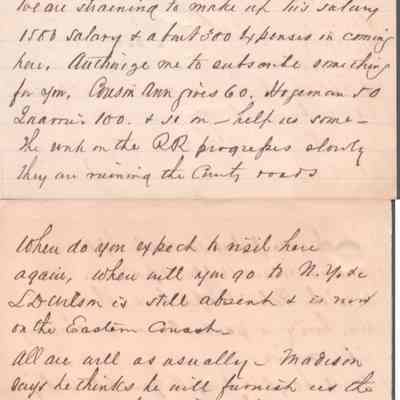 We are straining to make up his salary
1500 salary & about 300 Expenses in coming
here. Authorize me to subscribe something
for you. Cousin Ann gives 60. Hogeman 50
100. & so on – help us some –
The work on the RR progresses slowly
They are ruining the County roads
When do you expect to visit here
again, When will you go to N.Y. &c
L D Wilson is still absent & is now
on the Eastern Coast –
All are well as usually – Madison
says he thinks he will furnish us the